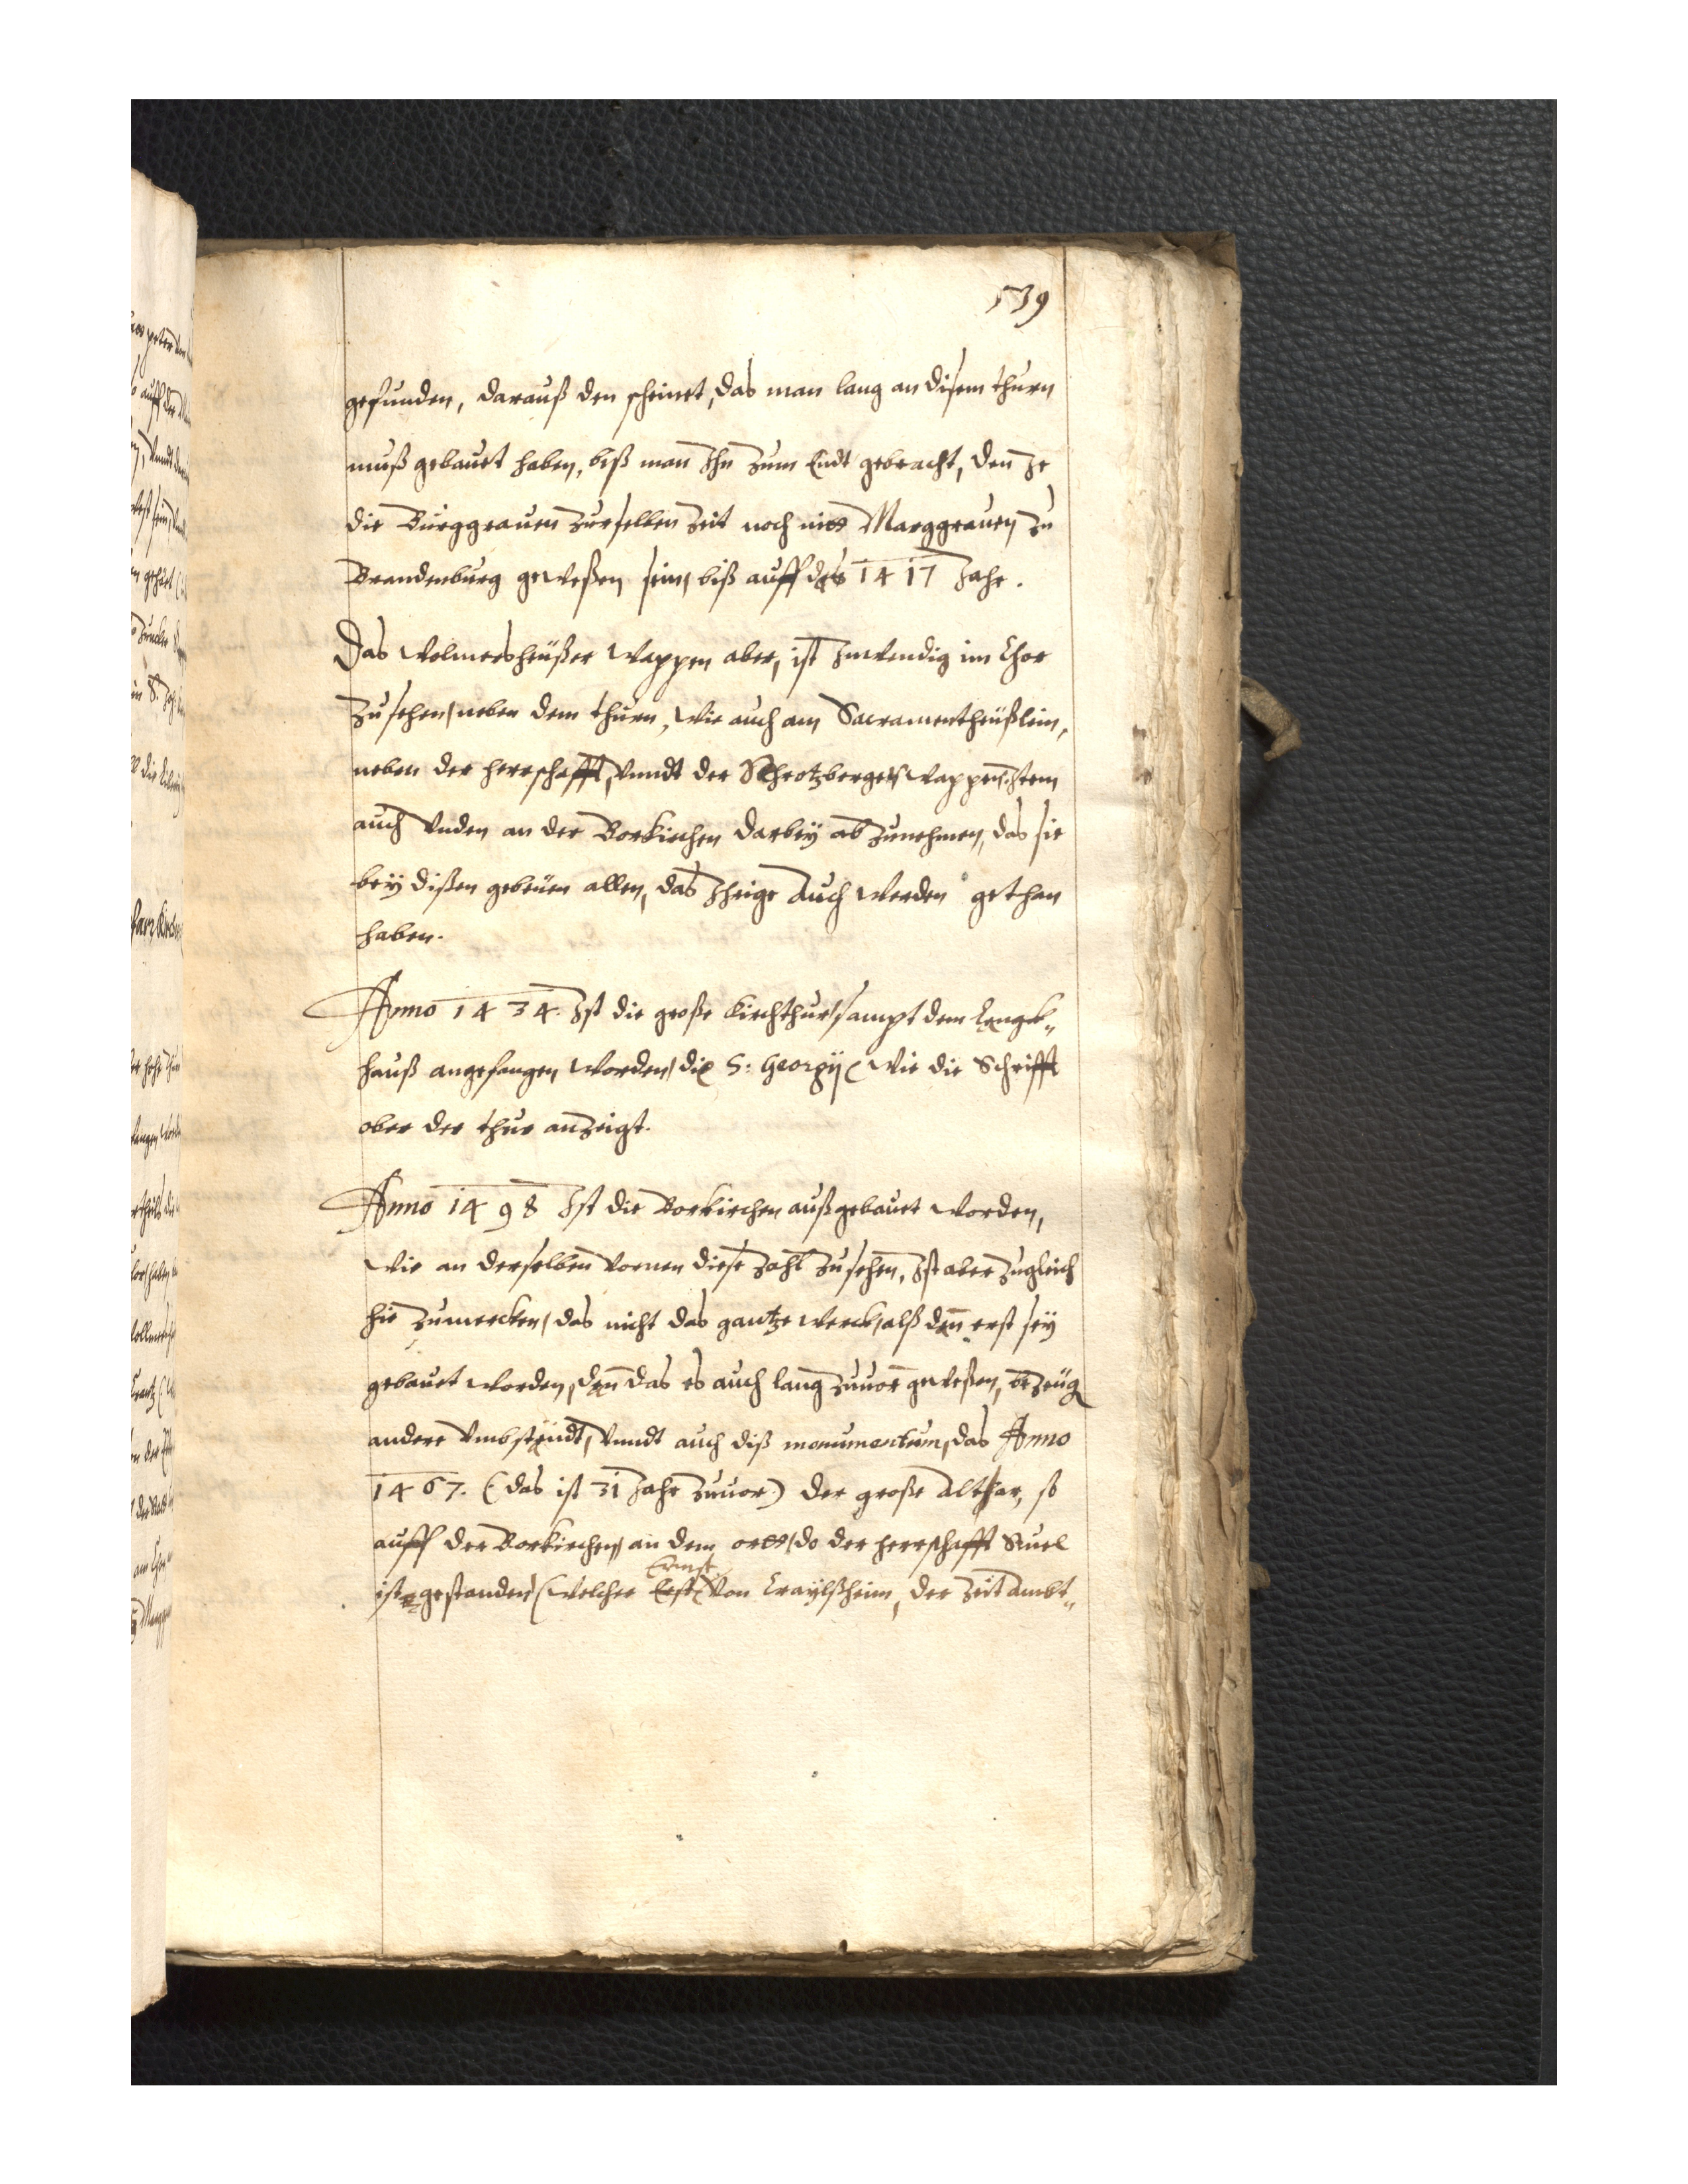 539
gefunden, darauß den scheinet, das man lang an disem thurn
muß gebauet haben, biß man Ihn zum Endt gebracht, den Je
die Burggrauen zurselben Zeit noch nicht Marggrauen zu
Brandenburg geweßen sein, biß auff das 1417 Jahr.
Das Wolmershäußer Wappen aber, ist Inwendig im Chor
zu sehen, neben dem thurn, Wie auch am Sacramentheüßlein,
neben der herrschafft, vnndt der Schrotzberger Wappen, Item
auch vnden an der Borkirchen darbey ab zunehmen, das sie
bey dißen gebeüen allen, das Ihrige auch werden gethan
haben.
Anno 1434. Ist die große Kirchthur sampt dem Lang„
hauß angefangen worden, die S: Georgij (Wie die Schrifft
ober der thur anzeigt.
Anno 1498 Ist die Borkirchen außgebauet worden,
Wie an derselben vornen diese Zahl zusehen, Ist aber zugleich
hie zumercken, das nicht das gantze werck, alß dann erst sey
gebauet worden, dann das es auch lang zuuor geweßen, bezeug
andere vmbständt, vnndt auch diß monumentum, das Anno
1467. (das ist 31 Jahr zuuor) der große Althar, so
auff der Borkirchen, an dem ortt, do der herrschafft Stuel
Ernst
ist gestanden (Welcher von Craylßheim, der Zeit ambt„